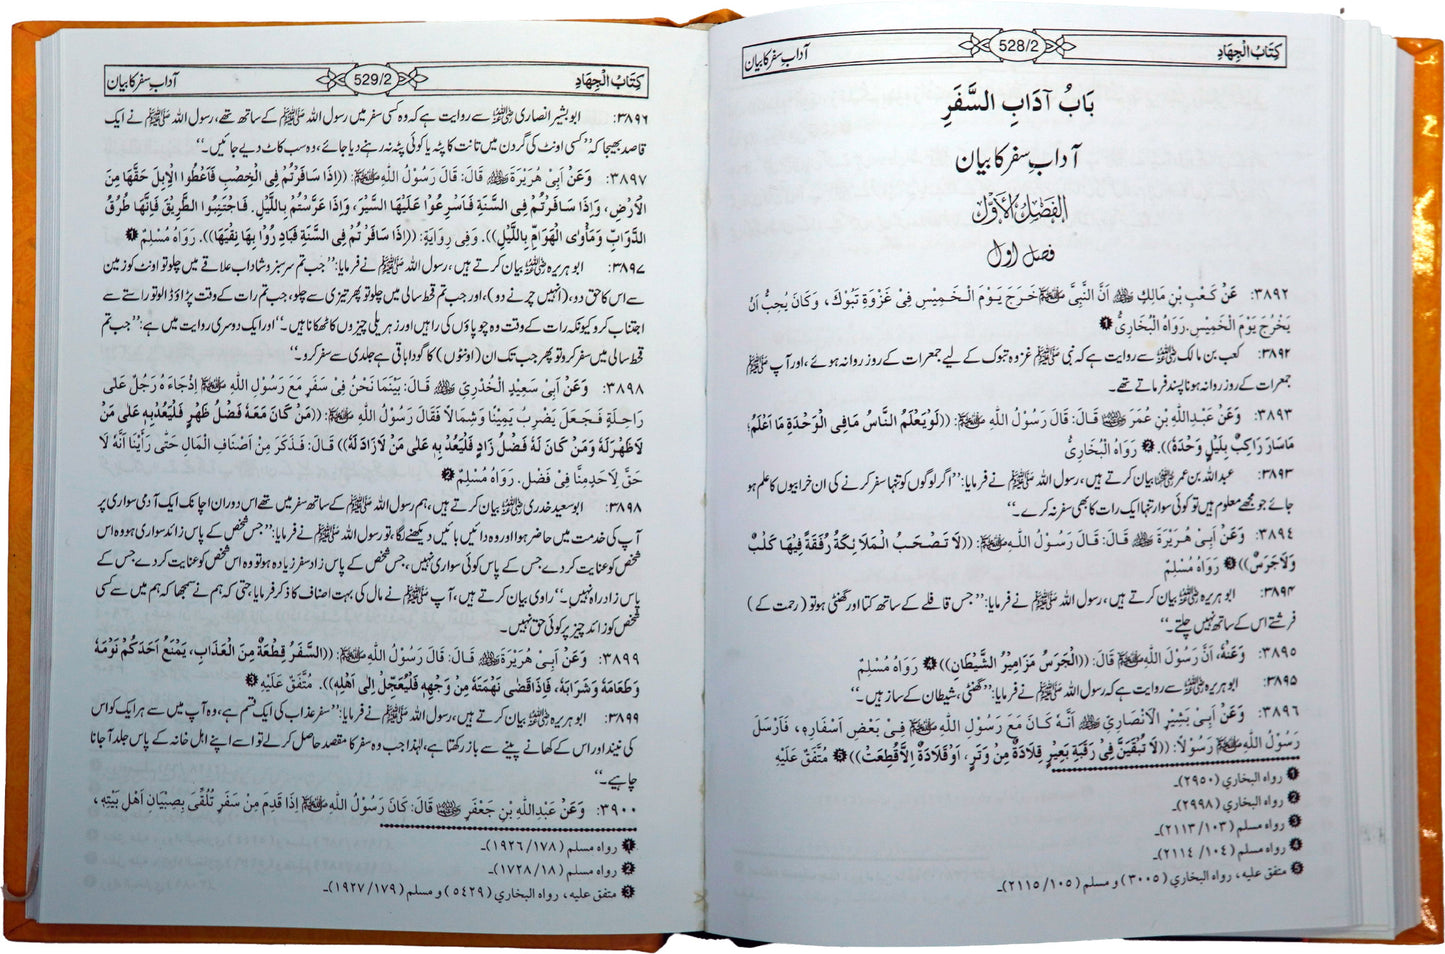 کِتَابُ الْجِهَادِ 528/2 آدابِ سفر کا بیان
بَابُ آدَابِ السَّفَرِ
آدابِ سفر کا بیان
الْفَصْلُ الْأَوَّلُ
فصل اول
۳۸۹۲: عَنْ كَعْبِ بْنِ مَالِكٍ ؓ اَنَّ النَّبِيَّ ﷺ خَرَجَ يَوْمَ الْخَمِيْسِ فِيْ غَزْوَةِ تَبُوْكَ، وَكَانَ يُحِبُّ اَنْ
يَخْرُجَ يَوْمَ الْخَمِيْسِ. رَوَاهُ الْبُخَارِيُّ ❶
۳۸۹۲: کعب بن مالک ؓ سے روایت ہے کہ نبی ﷺ غزوہ تبوک کے لیے جمعرات کے روز روانہ ہوئے، اور آپ ﷺ
جمعرات کے روز روانہ ہونا پسند فرماتے تھے۔
۳۸۹۳: وَعَنْ عَبْدِاللّٰهِ بْنِ عُمَرَ ؓ قَالَ: قَالَ رَسُوْلُ اللّٰهِ ﷺ: ((لَوْ يَعْلَمُ النَّاسُ مَا فِي الْوَحْدَةِ مَا اَعْلَمُ؛
مَا سَارَ رَاكِبٌ بِلَيْلٍ وَحْدَهُ)). ❷ رَوَاهُ الْبُخَارِيُّ
۳۸۹۳: عبداللہ بن عمر ؓ بیان کرتے ہیں، رسول اللہ ﷺ نے فرمایا: ’’اگر لوگوں کو تنہا سفر کرنے کی ان خرابیوں کا علم ہو
جائے جو مجھے معلوم ہیں تو کوئی سوار تنہا ایک رات کا بھی سفر نہ کرے۔‘‘
۳۸۹۴: وَعَنْ اَبِيْ هُرَيْرَةَ ؓ قَالَ: قَالَ رَسُوْلُ اللّٰهِ ﷺ: ((لَا تَصْحَبُ الْمَلَائِكَةُ رُفْقَةً فِيْهَا كَلْبٌ
وَلَا جَرَسٌ)) ❸ رَوَاهُ مُسْلِمٌ
۳۸۹۴: ابو ہریرہ ؓ بیان کرتے ہیں، رسول اللہ ﷺ نے فرمایا: ’’جس قافلے کے ساتھ کتا اور گھنٹی ہو تو (رحمت کے)
فرشتے اس کے ساتھ نہیں چلتے۔‘‘
۳۸۹۵: وَعَنْهُ، اَنَّ رَسُوْلَ اللّٰهِ ﷺ قَالَ: ((الْجَرَسُ مَزَامِيْرُ الشَّيْطَانِ)) ❹ رَوَاهُ مُسْلِمٌ
۳۸۹۵: ابو ہریرہ ؓ سے روایت ہے کہ رسول اللہ ﷺ نے فرمایا: ’’گھنٹی، شیطان کے ساز ہیں۔‘‘
۳۸۹۶: وَعَنْ اَبِيْ بَشِيْرٍ الْاَنْصَارِيِّ ؓ اَنَّهُ كَانَ مَعَ رَسُوْلِ اللّٰهِ ﷺ فِيْ بَعْضِ اَسْفَارِهِ، فَاَرْسَلَ
رَسُوْلُ اللّٰهِ ﷺ رَسُوْلًا: ((لَا تُبْقَيَنَّ فِيْ رَقَبَةِ بَعِيْرٍ قِلَادَةٌ مِنْ وَتَرٍ، اَوْ قِلَادَةٌ اِلَّا قُطِعَتْ)) ❺ مُتَّفَقٌ عَلَيْهِ
❶ رواه البخاري (۲۹۵۰)۔
❷ رواه البخاري (۲۹۹۸)۔
❸ رواه مسلم (۱۰۳/۲۱۱۳)۔
❹ رواه مسلم (۱۰۴/۲۱۱۴)۔
❺ متفق عليه، رواه البخاري (۳۰۰۵) و مسلم (۱۰۵/۲۱۱۵)۔
کِتَابُ الْجِهَادِ 529/2 آدابِ سفر کا بیان
۳۸۹۶: ابو بشیر انصاری ؓ سے روایت ہے کہ وہ کسی سفر میں رسول اللہ ﷺ کے ساتھ تھے، رسول اللہ ﷺ نے ایک
قاصد بھیجا کہ ’’کسی اونٹ کی گردن میں تانت کا پٹہ یا کوئی پٹہ نہ رہنے دیا جائے، وہ سب کاٹ دیے جائیں۔‘‘
۳۸۹۷: وَعَنْ اَبِيْ هُرَيْرَةَ ؓ قَالَ: قَالَ رَسُوْلُ اللّٰهِ ﷺ: ((اِذَا سَافَرْتُمْ فِي الْخِصْبِ فَاَعْطُوا الْاِبِلَ حَقَّهَا مِنَ
الْاَرْضِ، وَاِذَا سَافَرْتُمْ فِي السَّنَةِ فَاَسْرِعُوْا عَلَيْهَا السَّيْرَ، وَاِذَا عَرَّسْتُمْ بِاللَّيْلِ. فَاجْتَنِبُوا الطَّرِيْقَ فَاِنَّهَا طُرُقُ
الدَّوَابِّ وَمَأْوَى الْهَوَامِّ بِاللَّيْلِ)). وَفِيْ رِوَايَةٍ: ((اِذَا سَافَرْتُمْ فِي السَّنَةِ فَبَادِرُوْا بِهَا نِقْيَهَا)). رَوَاهُ مُسْلِمٌ ❶
۳۸۹۷: ابو ہریرہ ؓ بیان کرتے ہیں، رسول اللہ ﷺ نے فرمایا: ’’جب تم سرسبز و شاداب علاقے میں چلو تو اونٹ کو زمین
سے اس کا حق دو، (انہیں چرنے دو)، اور جب تم قحط سالی میں چلو تو پھر تیزی سے چلو، جب تم رات کے وقت پڑاؤ ڈالو تو راستے سے
اجتناب کرو کیونکہ رات کے وقت وہ چوپاؤں کی راہیں اور زہریلی چیزوں کا ٹھکانا ہیں۔‘‘ اور ایک دوسری روایت میں ہے: ’’جب تم
قحط سالی میں سفر کرو تو پھر جب تک ان (اونٹوں) کا گودا باقی ہے جلدی سے سفر کرو۔‘‘
۳۸۹۸: وَعَنْ اَبِيْ سَعِيْدٍ الْخُدْرِيِّ ؓ قَالَ: بَيْنَمَا نَحْنُ فِيْ سَفَرٍ مَعَ رَسُوْلِ اللّٰهِ ﷺ اِذْ جَاءَهُ رَجُلٌ عَلٰى
رَاحِلَةٍ فَجَعَلَ يَضْرِبُ يَمِيْنًا وَشِمَالًا فَقَالَ رَسُوْلُ اللّٰهِ ﷺ: ((مَنْ كَانَ مَعَهُ فَضْلُ ظَهْرٍ فَلْيَعُدْ بِهِ عَلٰى مَنْ
لَا ظَهْرَ لَهُ وَمَنْ كَانَ لَهُ فَضْلُ زَادٍ فَلْيَعُدْ بِهِ عَلٰى مَنْ لَا زَادَ لَهُ)) قَالَ: فَذَكَرَ مِنْ اَصْنَافِ الْمَالِ حَتّٰى رَأَيْنَا اَنَّهُ لَا
حَقَّ لِاَحَدٍ مِنَّا فِيْ فَضْلٍ. رَوَاهُ مُسْلِمٌ ❷
۳۸۹۸: ابو سعید خدری ؓ بیان کرتے ہیں، ہم رسول اللہ ﷺ کے ساتھ سفر میں تھے اس دوران اچانک ایک آدمی سواری پر
آپ کی خدمت میں حاضر ہوا اور وہ دائیں بائیں دیکھنے لگا، تو رسول اللہ ﷺ نے فرمایا: ’’جس شخص کے پاس زائد سواری ہو وہ اس
شخص کو عنایت کر دے جس کے پاس کوئی سواری نہیں، جس شخص کے پاس زاد سفر زیادہ ہو تو وہ اس شخص کو عنایت کر دے جس کے
پاس زاد راہ نہیں۔‘‘ راوی بیان کرتے ہیں، آپ ﷺ نے مال کی بہت اصناف کا ذکر فرمایا، حتی کہ ہم نے سمجھا کہ ہم میں سے کسی
شخص کو زائد چیز پر کوئی حق نہیں۔
۳۸۹۹: وَعَنْ اَبِيْ هُرَيْرَةَ ؓ قَالَ: قَالَ رَسُوْلُ اللّٰهِ ﷺ: ((السَّفَرُ قِطْعَةٌ مِنَ الْعَذَابِ، يَمْنَعُ اَحَدَكُمْ نَوْمَهُ
وَطَعَامَهُ وَشَرَابَهُ، فَاِذَا قَضٰى نَهْمَتَهُ مِنْ وَجْهِهِ فَلْيُعَجِّلْ اِلٰى اَهْلِهِ)). مُتَّفَقٌ عَلَيْهِ ❸
۳۸۹۹: ابو ہریرہ ؓ بیان کرتے ہیں، رسول اللہ ﷺ نے فرمایا: ’’سفر عذاب کی ایک قسم ہے، وہ آپ میں سے ہر ایک کو اس
کی نیند اور اس کے کھانے پینے سے باز رکھتا ہے، لہٰذا جب وہ سفر کا مقصد حاصل کر لے تو اسے اپنے اہل خانہ کے پاس جلد آ جانا
چاہیے۔‘‘
۳۹۰۰: وَعَنْ عَبْدِاللّٰهِ بْنِ جَعْفَرٍ ؓ قَالَ: كَانَ رَسُوْلُ اللّٰهِ ﷺ اِذَا قَدِمَ مِنْ سَفَرٍ تُلُقِّيَ بِصِبْيَانِ اَهْلِ بَيْتِهِ،
❶ رواه مسلم (۱۷۸/۱۹۲۶)۔
❷ رواه مسلم (۱۸/۱۷۲۸)۔
❸ متفق عليه، رواه البخاري (۵۴۲۹) و مسلم (۱۷۹/۱۹۲۷)۔